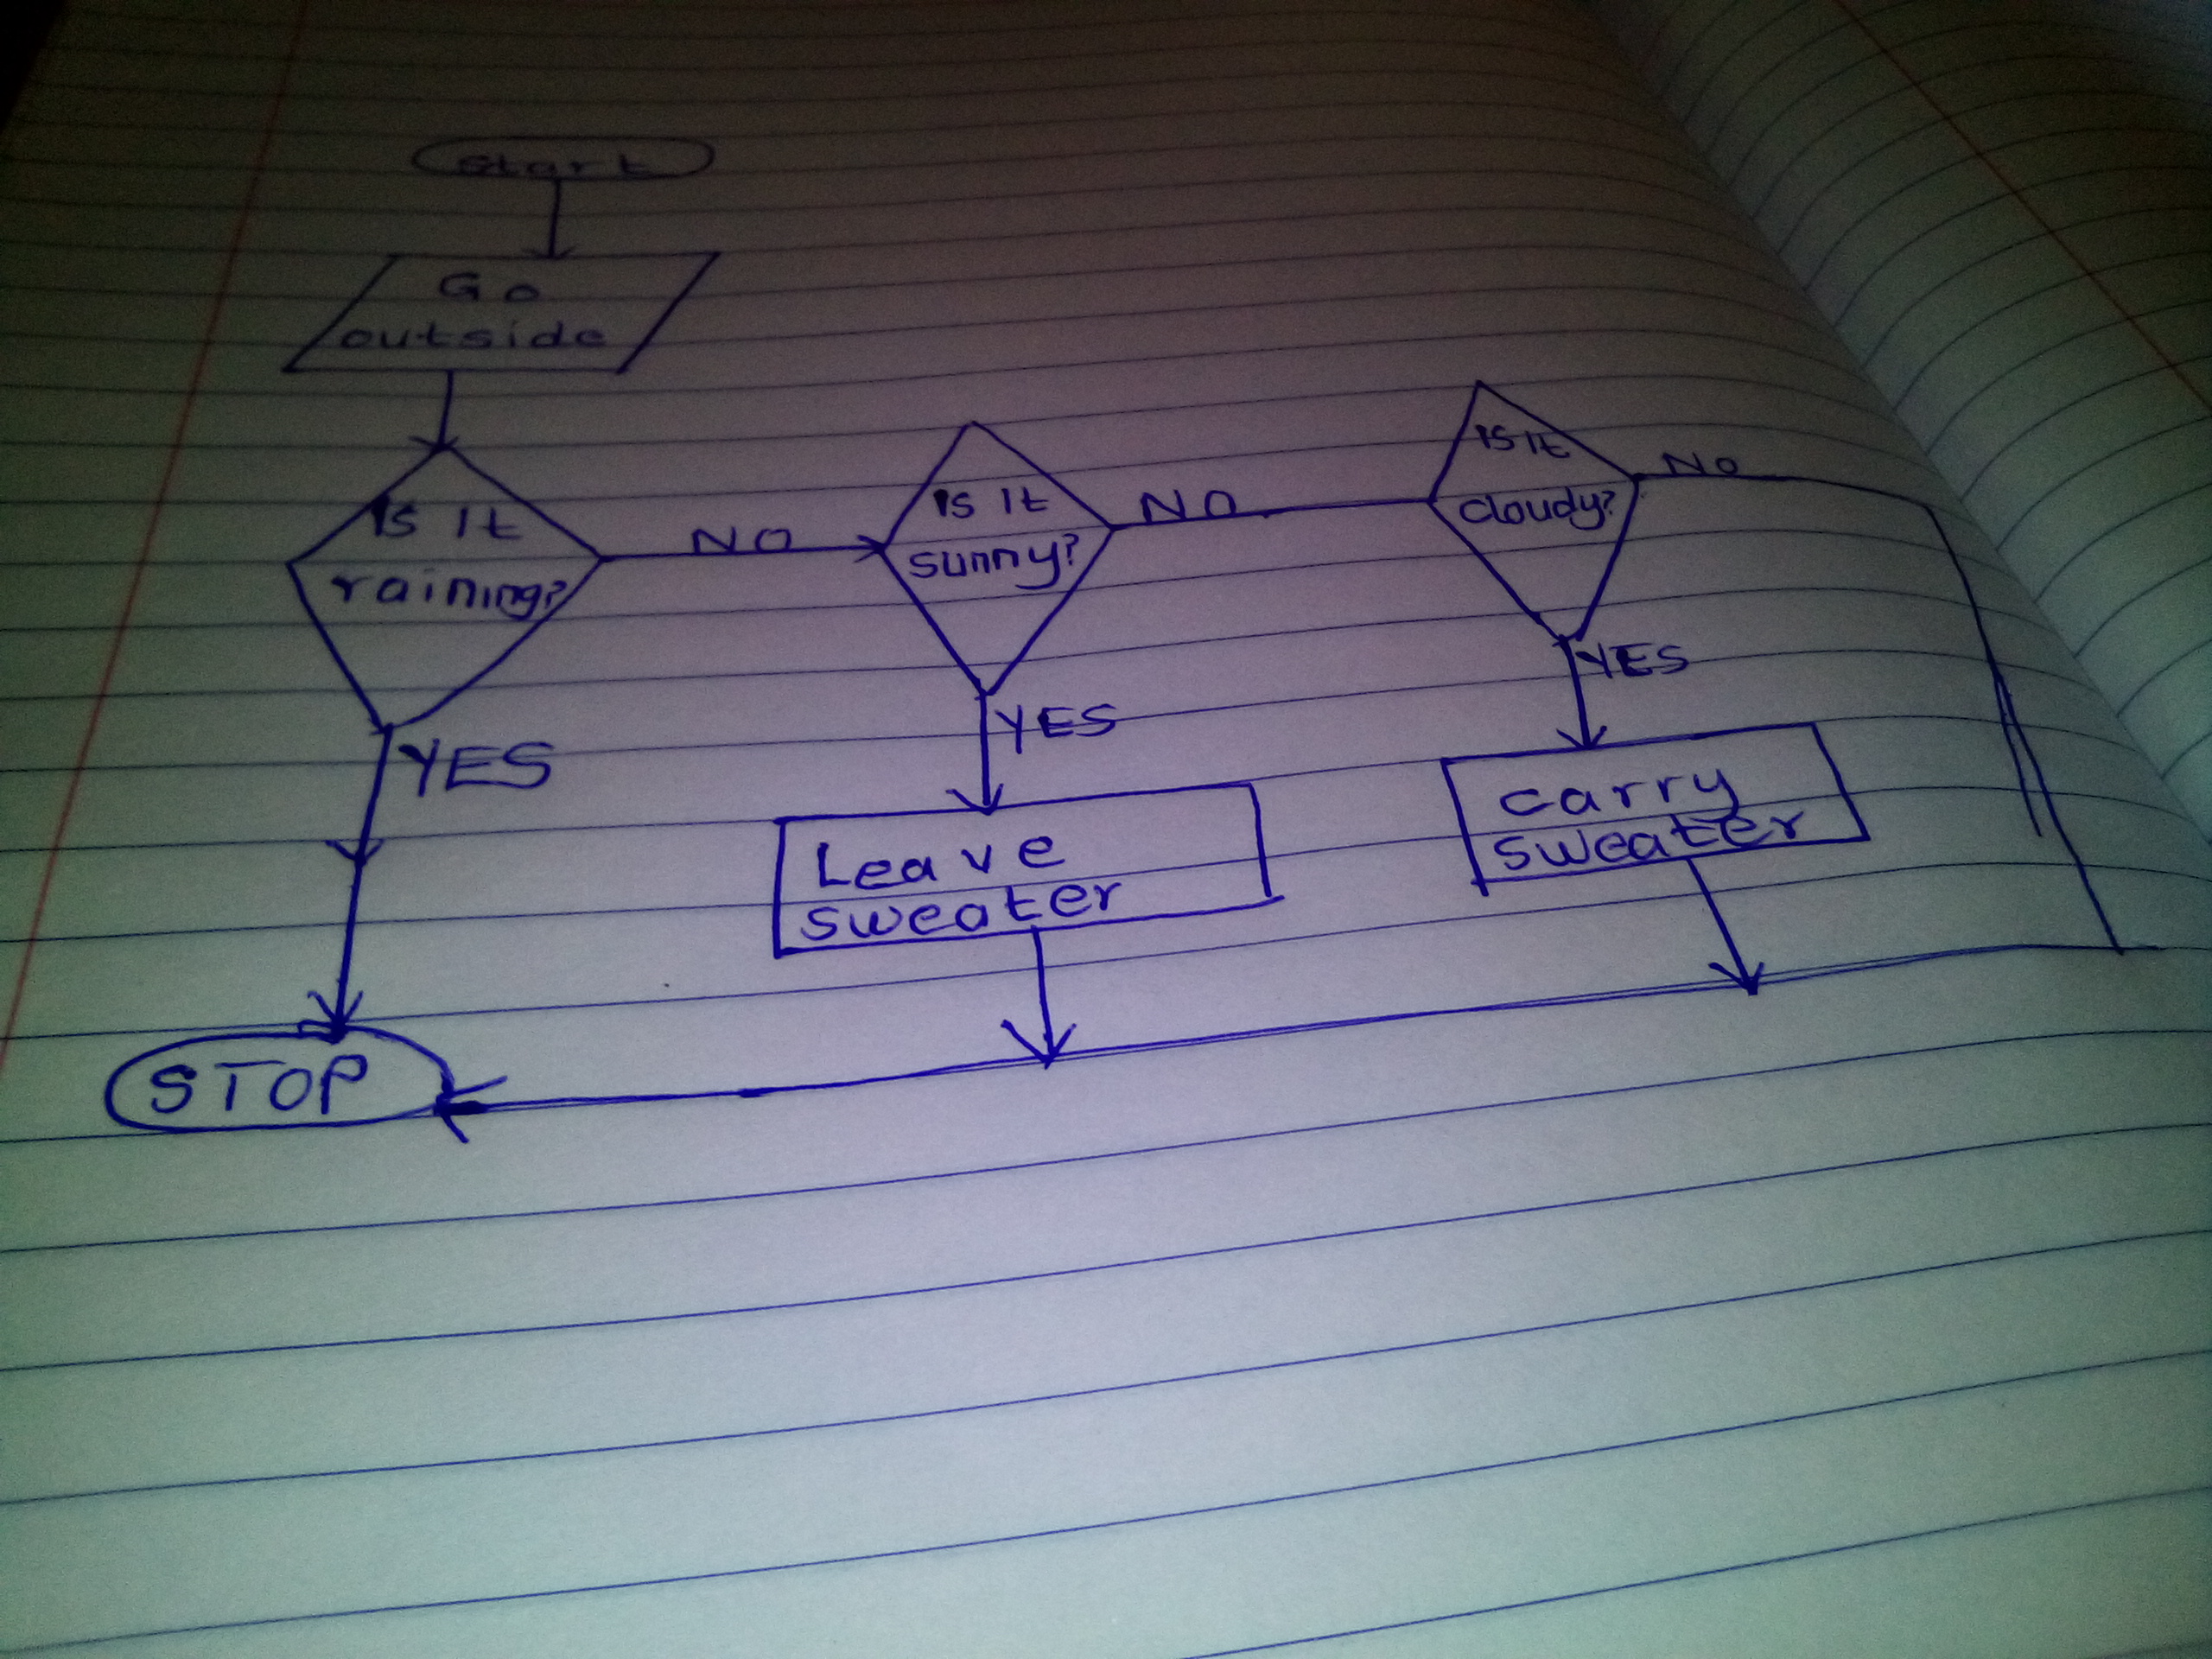 start
Go
outside
Is It
raining?
NO
Is It
sunny?
NO
Is It
cloudy?
NO
YES
YES
YES
Leave
sweater
carry
sweater
STOP